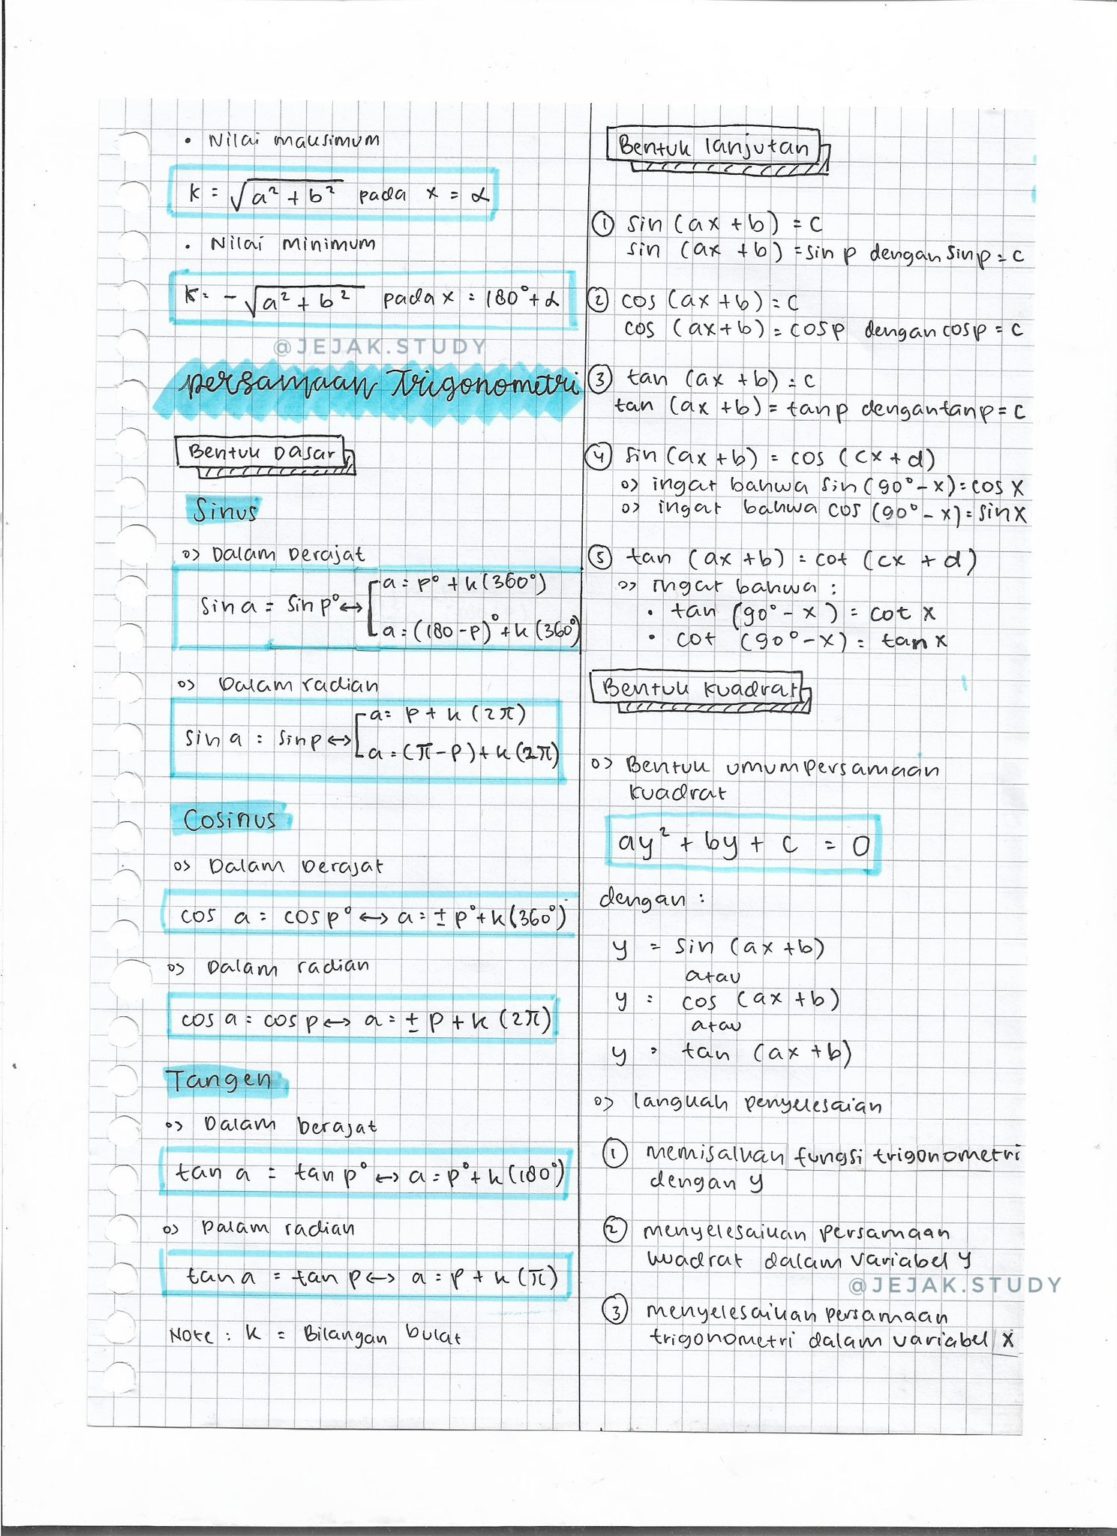 • Nilai maksimum
k = √a² + b² pada x = α
• Nilai minimum
k = -√a² + b² pada x = 180° + α
@JEJAK.STUDY
persamaan Trigonometri
Bentuk Dasar
Sinus
Dalam Derajat
sin a = sin p° ↔ a = p° + k (360°)
a = (180 - p)° + k (360°)
Dalam radian
sin a = sin p ↔ a = p + k (2π)
a = (π - p) + k (2π)
Cosinus
Dalam Derajat
cos a = cos p° ↔ a = ± p° + k (360°)
Dalam radian
cos a = cos p ↔ a = ± p + k (2π)
Tangen
Dalam berajat
tan a = tan p° ↔ a = p° + k (180°)
Dalam radian
tan a = tan p ↔ a = p + k (π)
Note : k = Bilangan bulat
Bentuk lanjutan
① sin (ax + b) = c
sin (ax + b) = sin p dengan sin p = c
② cos (ax + b) = c
cos (ax + b) = cos p dengan cos p = c
③ tan (ax + b) = c
tan (ax + b) = tan p dengan tan p = c
④ sin (ax + b) = cos (cx + d)
ingat bahwa sin (90° - x) = cos x
ingat bahwa cos (90° - x) = sin x
⑤ tan (ax + b) = cot (cx + d)
ingat bahwa :
• tan (90° - x) = cot x
• cot (90° - x) = tan x
Bentuk kuadrat
Bentuk umum persamaan
kuadrat
ay² + by + c = 0
dengan :
y = sin (ax + b)
atau
y = cos (ax + b)
atau
y = tan (ax + b)
langkah penyelesaian
① memisalkan fungsi trigonometri
dengan y
② menyelesaikan persamaan
kuadrat dalam variabel y
@JEJAK.STUDY
③ menyelesaikan persamaan
trigonometri dalam variabel x